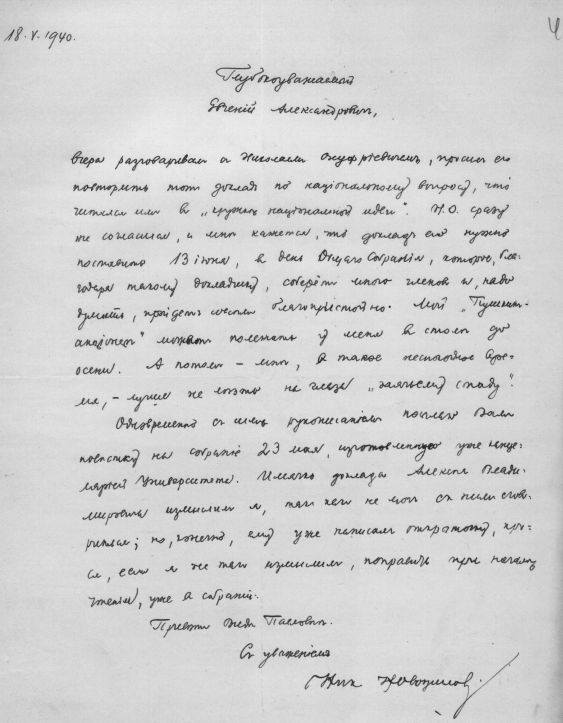 18.V.1940.
4
Глубокоуважаемый
Евгеній Александровичъ,
Вчера разговаривалъ съ Николаемъ Онуфріевичемъ, просилъ его
повторить тотъ докладъ по національному вопросу, что
читался имъ в „кружкѣ національной идеи". Н.О. сразу
же согласился, и мнѣ кажется, что докладъ его нужно
поставить 13 іюня, в день Общаго Собранія, которое, бла-
годаря такому докладчику, соберетъ много членовъ и, надо
думать, пройдетъ совсѣмъ благопристойно. Мой „Пушкин-
анархист" можетъ полежать у меня в столѣ до
осени. А потомъ – мнѣ, в такое неспокойное вре-
мя, – лучше не лѣзть на глаза „заячьему стаду".
Одновременно съ симъ рукописаніемъ посылаю Вамъ
повѣстку на собраніе 23 мая, изготовленную уже канце-
ляріей Университета. Имячко доклада Алексѣя Влади-
мировича измыслилъ я, такъ какъ не могъ съ нимъ сгово-
риться; но, конечно, ему уже написалъ открытку, про-
ся, если я не такъ измыслилъ, поправить при началѣ
чтенія, уже в собраніи.
Привѣтъ Павловнѣ.
Съ уваженіемъ
Ник